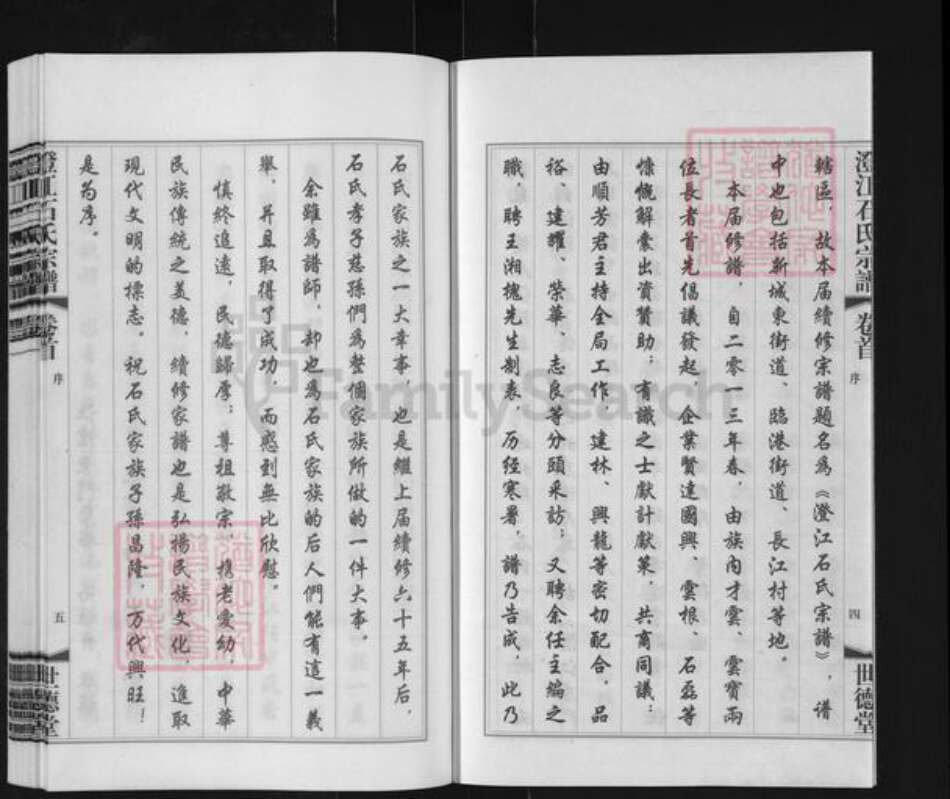 澄江石氏宗譜
卷首
序
四
世德堂
轄區，故本届續修宗譜題名爲《澄江石氏宗譜》，譜
中也包括新城東街道、臨港街道、長江村等地。
本届修譜，自二零一三年春，由族内才雲、雲寶兩
位長者首先倡議發起，企業賢達國興、雲根、石磊等
慷慨解囊出資贊助；有識之士獻計獻策，共商同議；
由順芳君主持全局工作，建林、興龍等密切配合。品
裕、建耀、榮華、志良等分頭采訪；又聘余任主編之
職，聘王湘槐先生制表，历经寒暑，譜乃告成，此乃
石氏家族之一大幸事，也是繼上届續修六十五年后，
石氏孝子慈孫們爲整個家族所做的一件大事。
余雖爲譜師，却也爲石氏家族的后人們能有這一義
舉，并且取得了成功，而感到無比欣慰。
慎終追遠，民德歸厚；尊祖敬宗，携老愛幼，中華
民族傳統之美德，續修家譜也是弘揚民族文化，進取
現代文明的標志。祝石氏家族子孫昌隆，万代興旺！
是为序。
澄江石氏宗譜
卷首
序
五
世德堂
FamilySearch